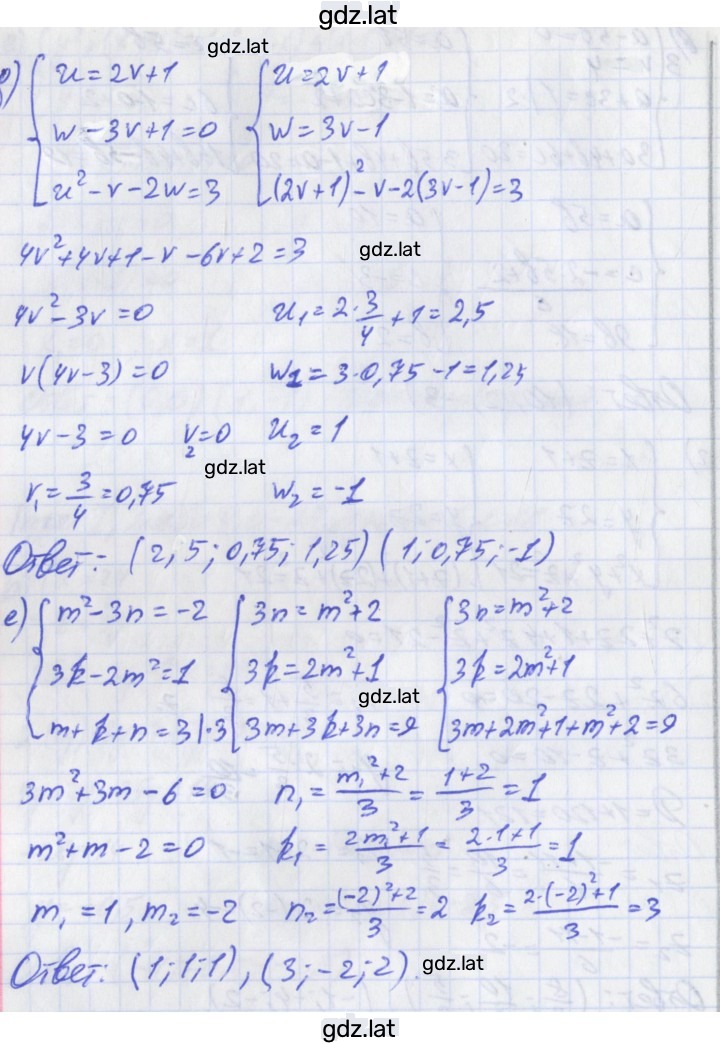 gdz.lat
gdz.lat
д) { u = 2v+1   { u = 2v+1
w - 3v+1 = 0   w = 3v-1
u² - v - 2w = 3   (2v+1)² - v - 2(3v-1) = 3
4v²+4v+1 - v - 6v+2 = 3   gdz.lat
4v² - 3v = 0   u₁ = 2·3/4 + 1 = 2,5
v(4v-3) = 0   w₁ = 3·0,75 - 1 = 1,25
4v - 3 = 0   v₂ = 0   u₂ = 1
gdz.lat
v₁ = 3/4 = 0,75   w₂ = -1
Ответ: (2,5; 0,75; 1,25) (1; 0,75; -1)
е) { m² - 3n = -2   { 3n = m²+2   { 3n = m²+2
3k - 2m² = 1   3k = 2m²+1   3k = 2m²+1
gdz.lat
m + k + n = 3 |·3   3m+3k+3n = 9   3m+2m²+1+m²+2 = 9
3m²+3m - 6 = 0   n₁ = (m₁²+2)/3 = (1+2)/3 = 1
m²+m - 2 = 0   k₁ = (2m₁²+1)/3 = (2·1+1)/3 = 1
m₁ = 1, m₂ = -2   n₂ = ((-2)²+2)/3 = 2   k₂ = (2·(-2)²+1)/3 = 3
Ответ: (1; 1; 1), (3; -2; 2).   gdz.lat
gdz.lat